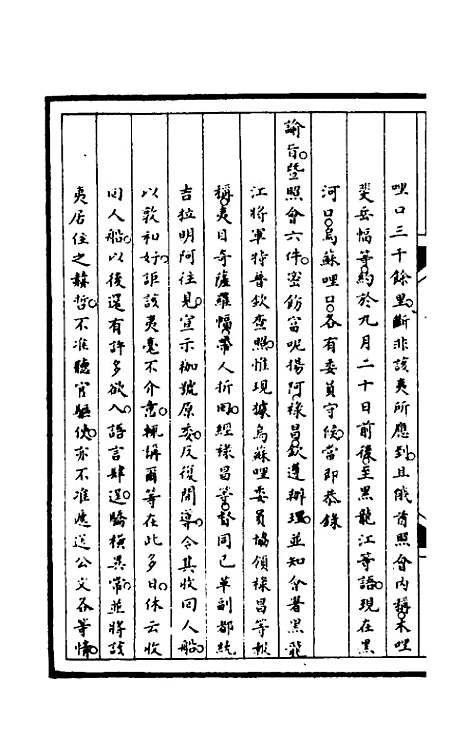 哩口三千餘里斷非該夷所應到且俄酋照會內稱木哩
斐岳幅等約於九月二十日前後至黑龍江等語現在黑
河口烏蘇哩口各有委員守候當即恭錄
諭旨暨照會六件密飭富呢揚阿祿昌欽遵辦理並知會署黑龍
江將軍特普欽查照惟現據烏蘇哩委員協領祿昌等報
稱夷目奇薩羅幅帶人折回經祿昌等督同已革副都統
吉拉明阿往見宣示枷號原委反復開導令其收回人船
以敦和好詎該夷毫不介意輒謂爾等在此多日休云收
回人船以後還有許多欲入語言肆逞驕橫異常並將該
夷居住之赫哲不准聽官驅使亦不准遞送公文各等情